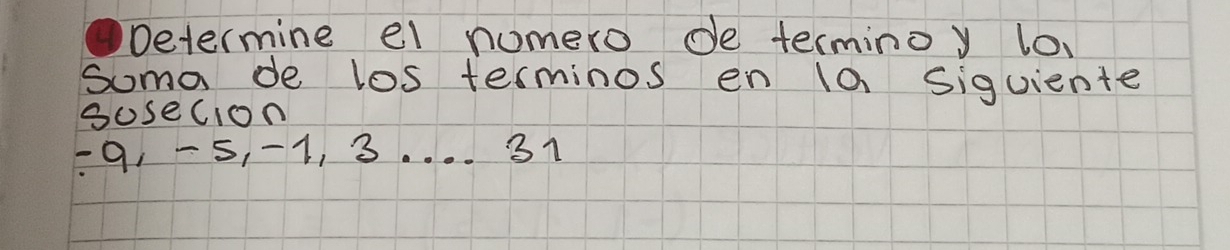 4 Determine el numero de termino y la
Suma de los terminos en la siguiente
Susecion
-9, -5, -1, 3 .... 31